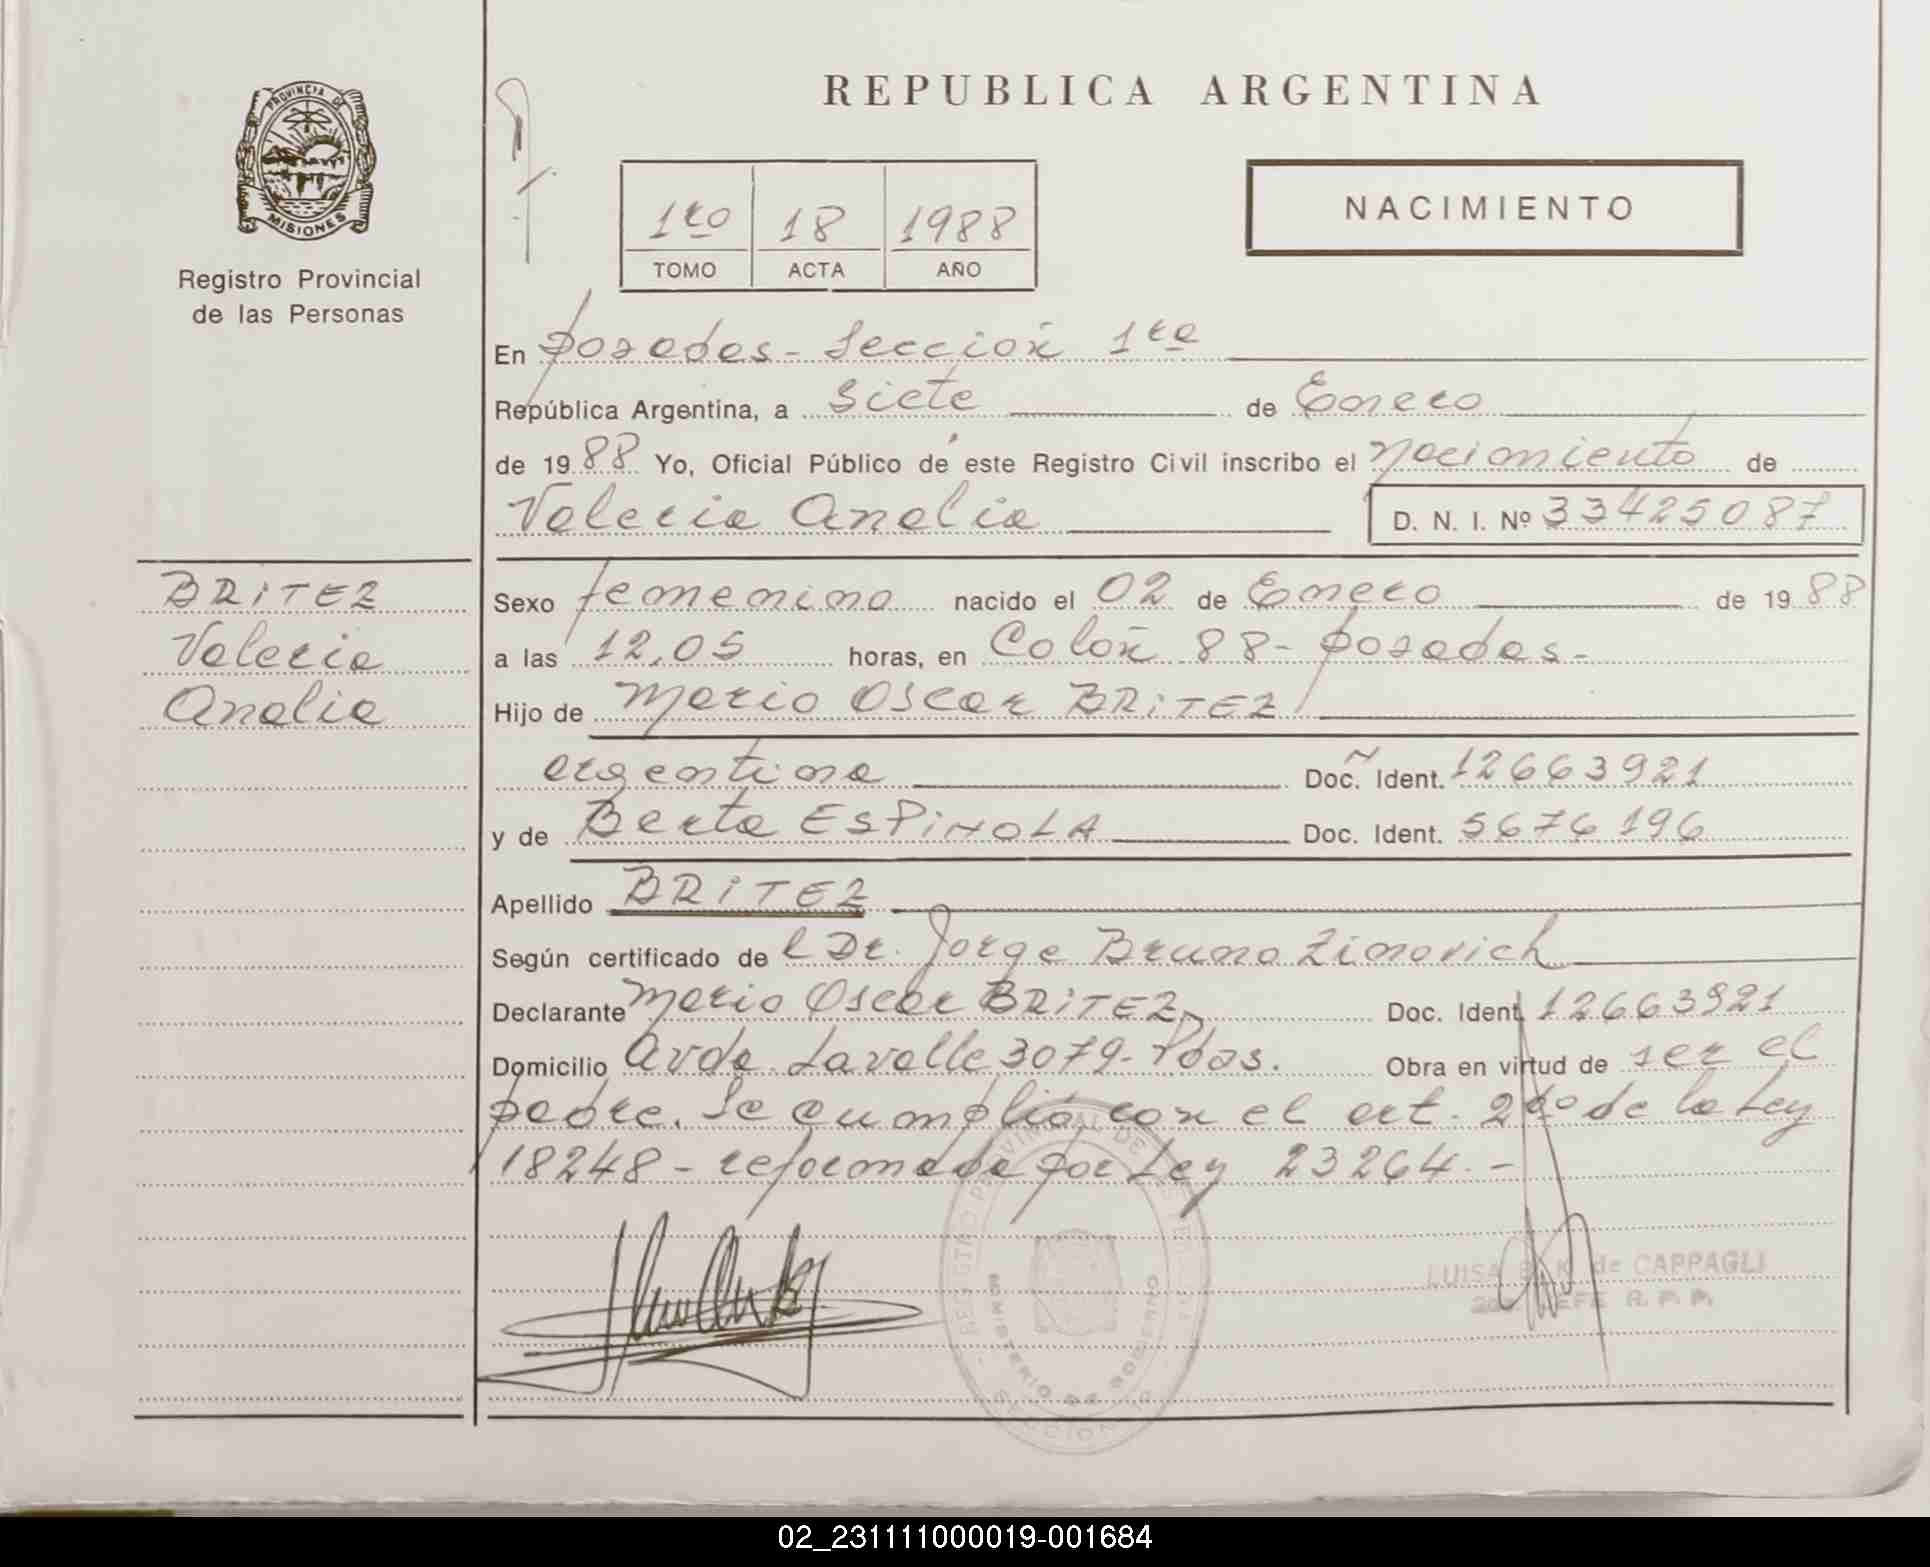 REPUBLICA ARGENTINA
PROVINCIA DE
MISIONES
Registro Provincial
de las Personas
1ro 18 1988
TOMO ACTA AÑO
NACIMIENTO
En Posadas - Sección 1ra
República Argentina, a Siete de Enero
de 1988 Yo, Oficial Público de este Registro Civil inscribo el Nacimiento de
Valeria Analia D. N. I. Nº 33425087
BRITEZ
Valeria
Analia
Sexo femenino nacido el 02 de Enero de 1988
a las 12,05 horas, en Colón 88 - Posadas -
Hijo de Mario Oscar BRITEZ
argentina Doc. Ident. 12663921
y de Berta ESPINOLA Doc. Ident. 5676196
Apellido BRITEZ
Según certificado de l Dr. Jorge Bruno Zimovich
Declarante Mario Oscar BRITEZ Doc. Ident. 12663921
Domicilio Avda. Lavalle 3079 - Pdas. Obra en virtud de ser el
padre. Se cumplió con el art. 2do de la Ley
18248 - reformada por Ley 23264. -
REGISTRO PROVINCIAL DE LAS PERSONAS
MINISTERIO DE GOBIERNO
SECCION
LUISA K de CAPPAGLI
JEFE R. P. P.
02_231111000019-001684